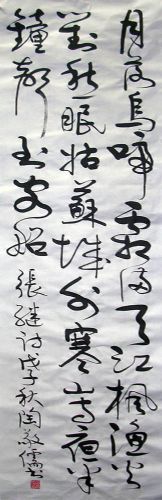 月落烏啼霜滿天江楓漁火
對愁眠姑蘇城外寒山寺夜半
鐘聲到客船 張繼詩戊子秋陶敬儒